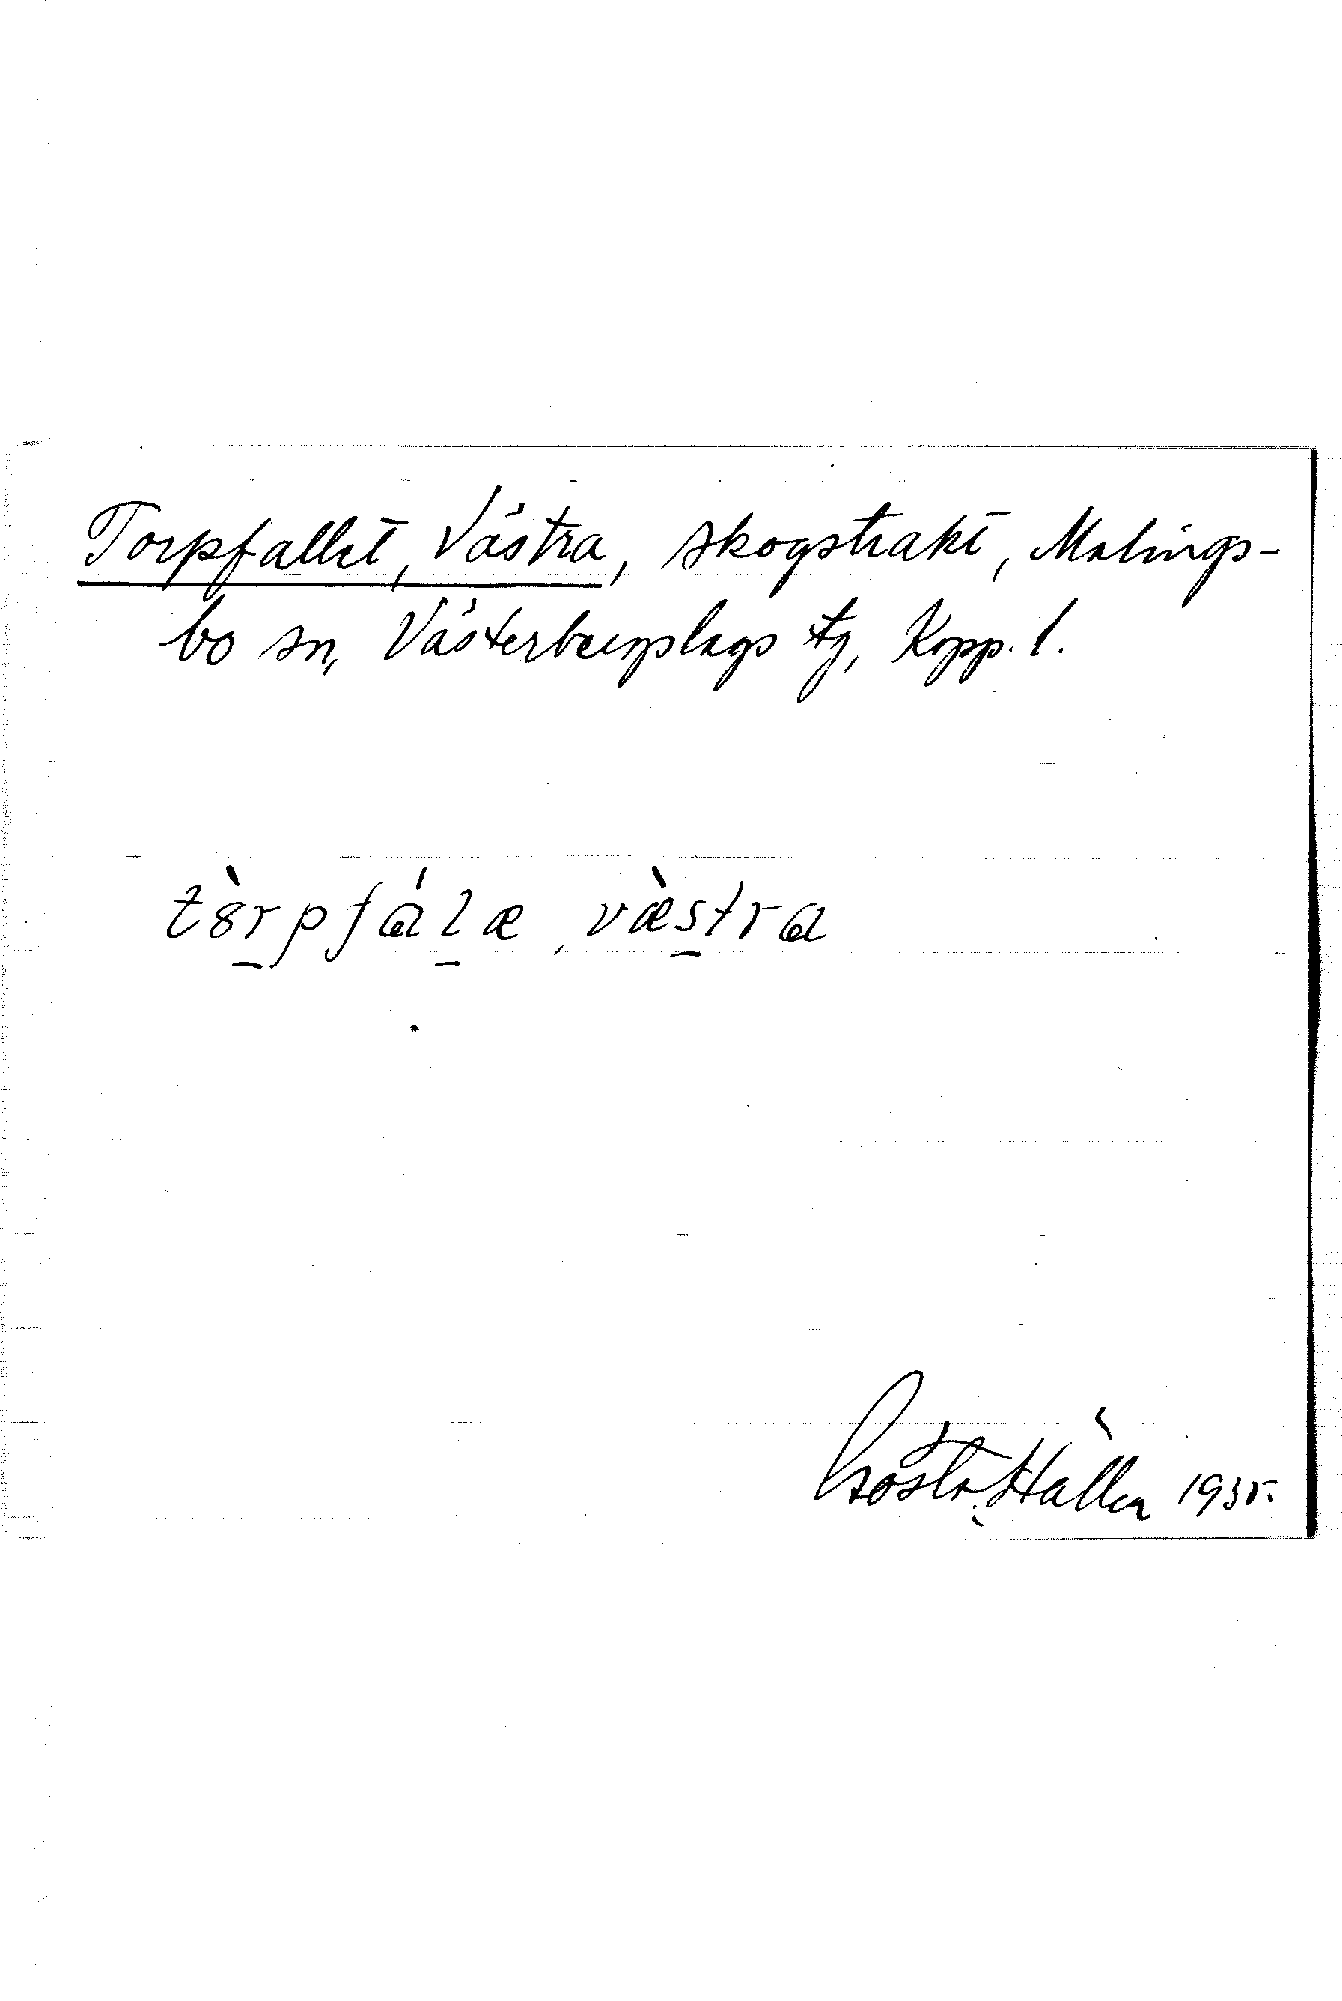 Torpfallet, Västra, skogstrakt, Malings-
bo sn, Västerbergslags tg, Kopp. l.
tȍrpfála, væ̀stra
Gösta Häller 1935.